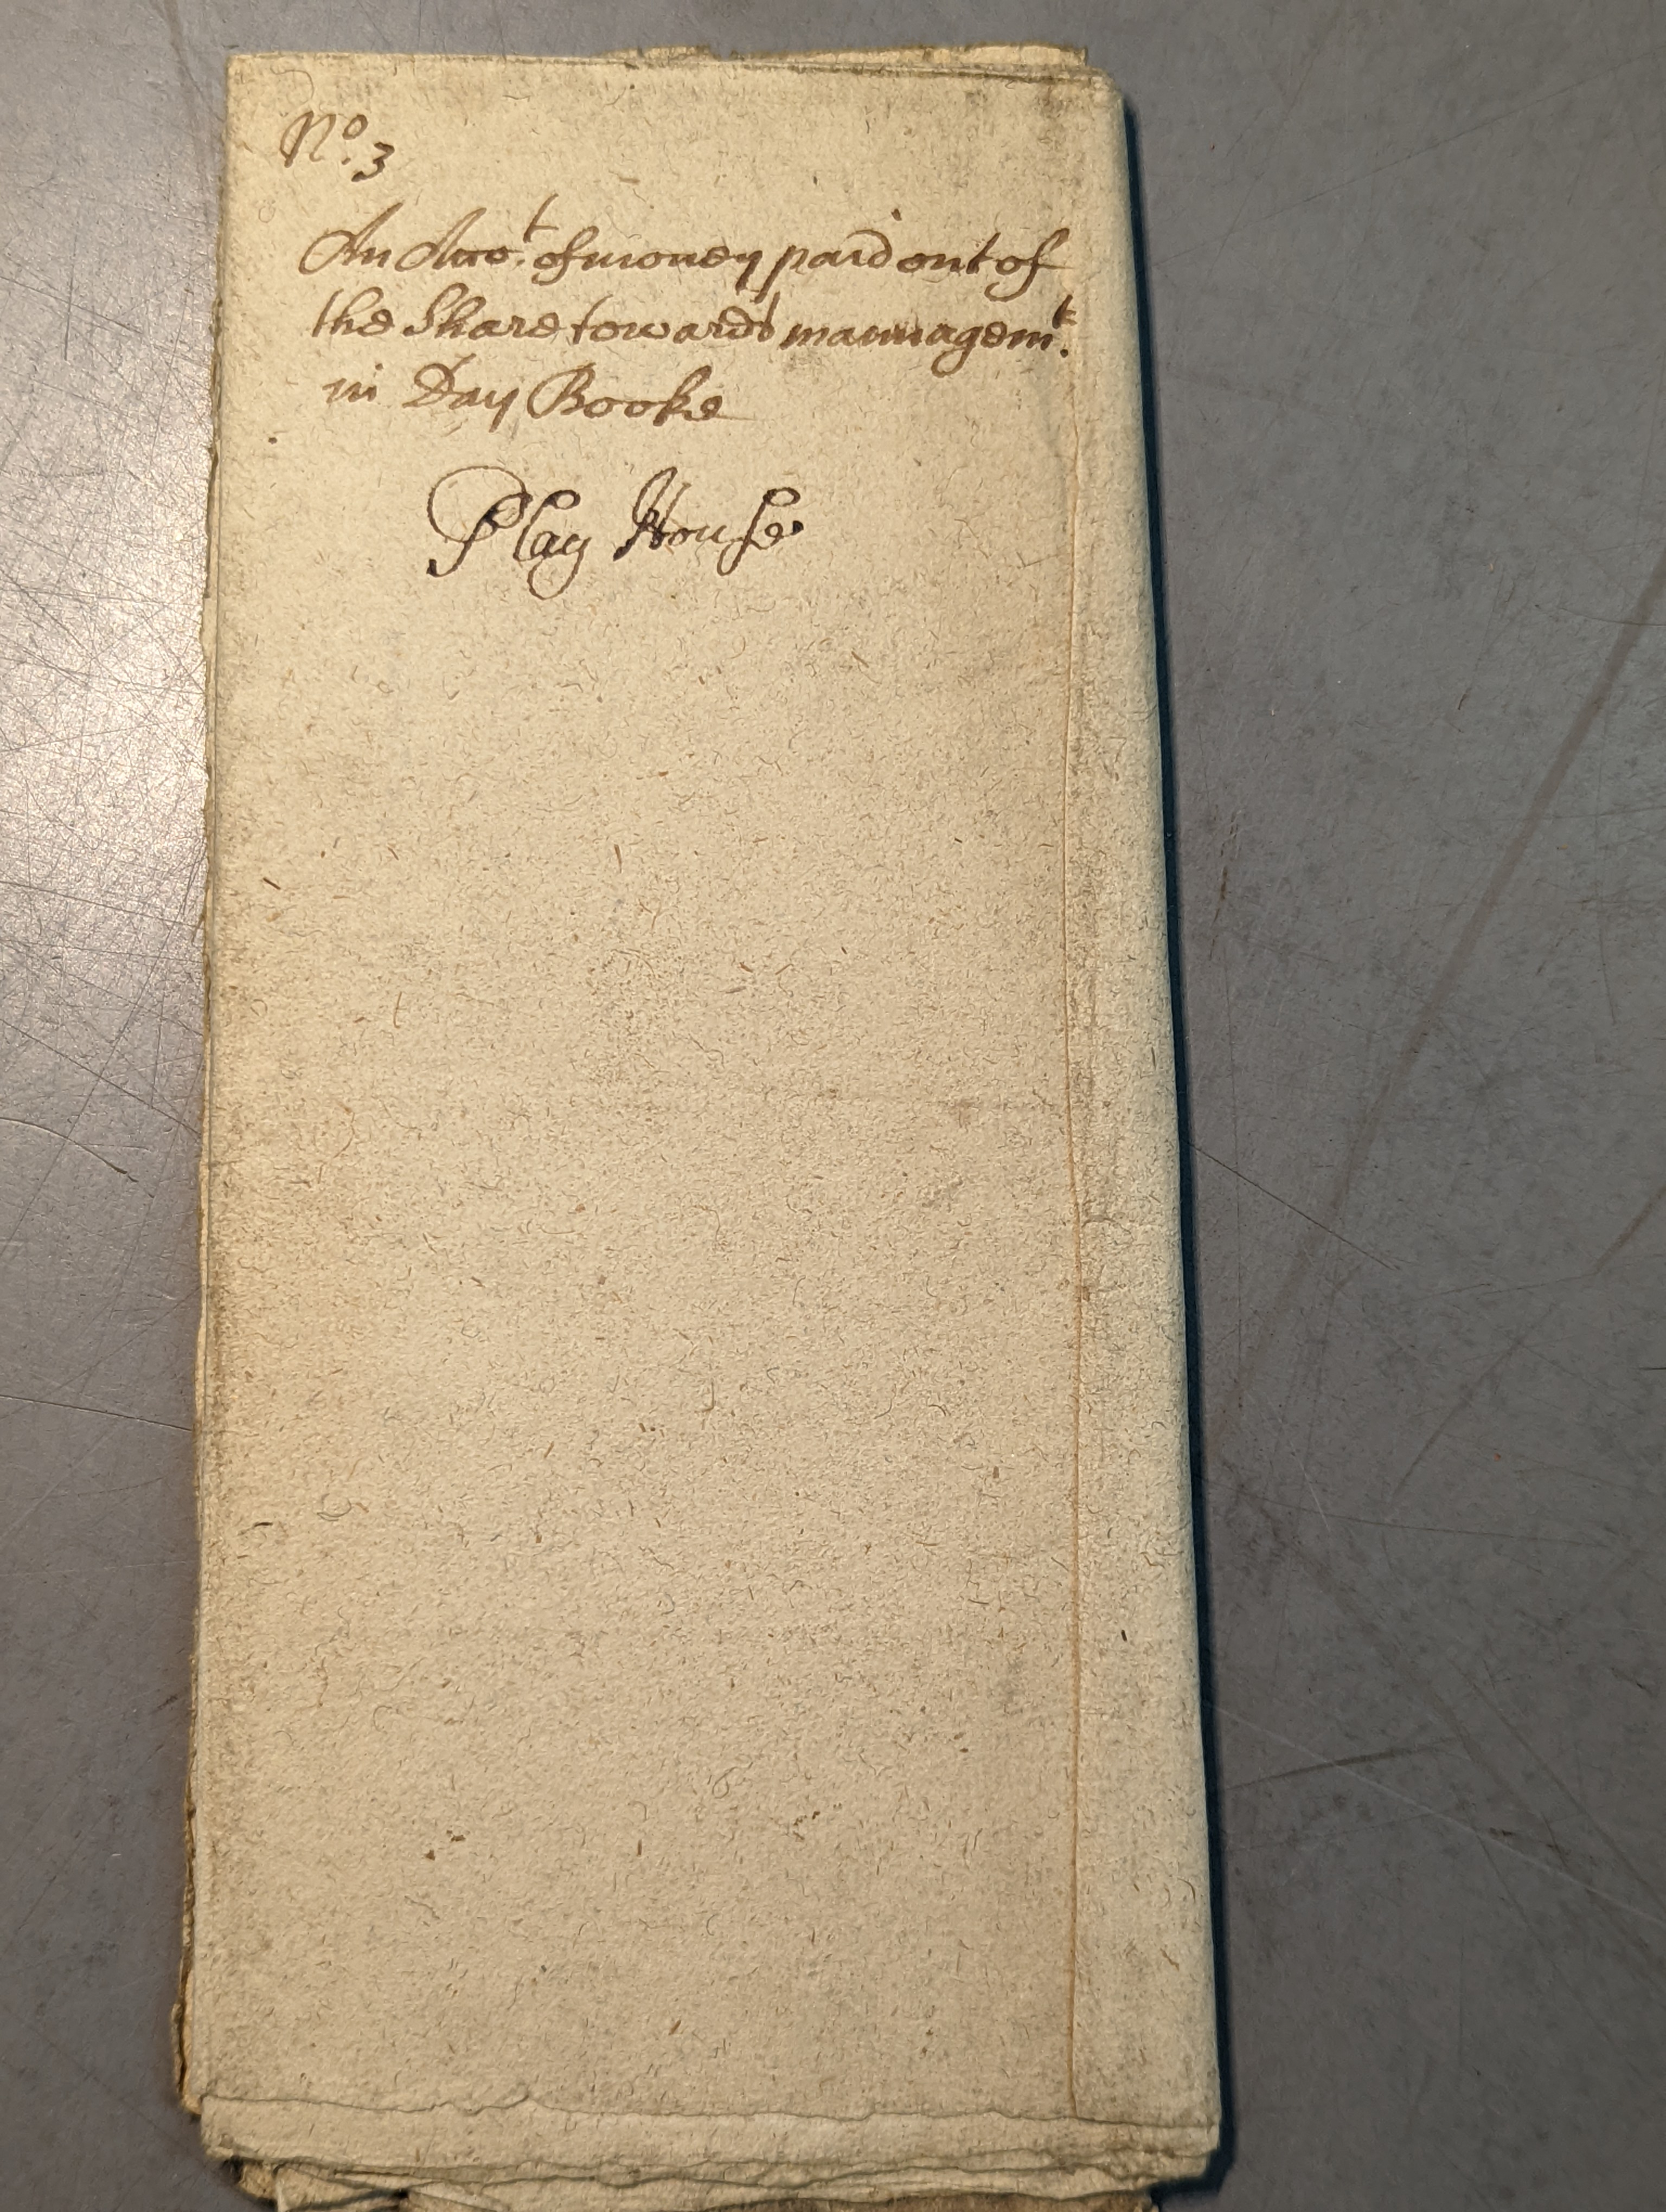 No. 3
An Acco.t of money paid out of
the Share towards mannagem.t
in Day Booke
Play House